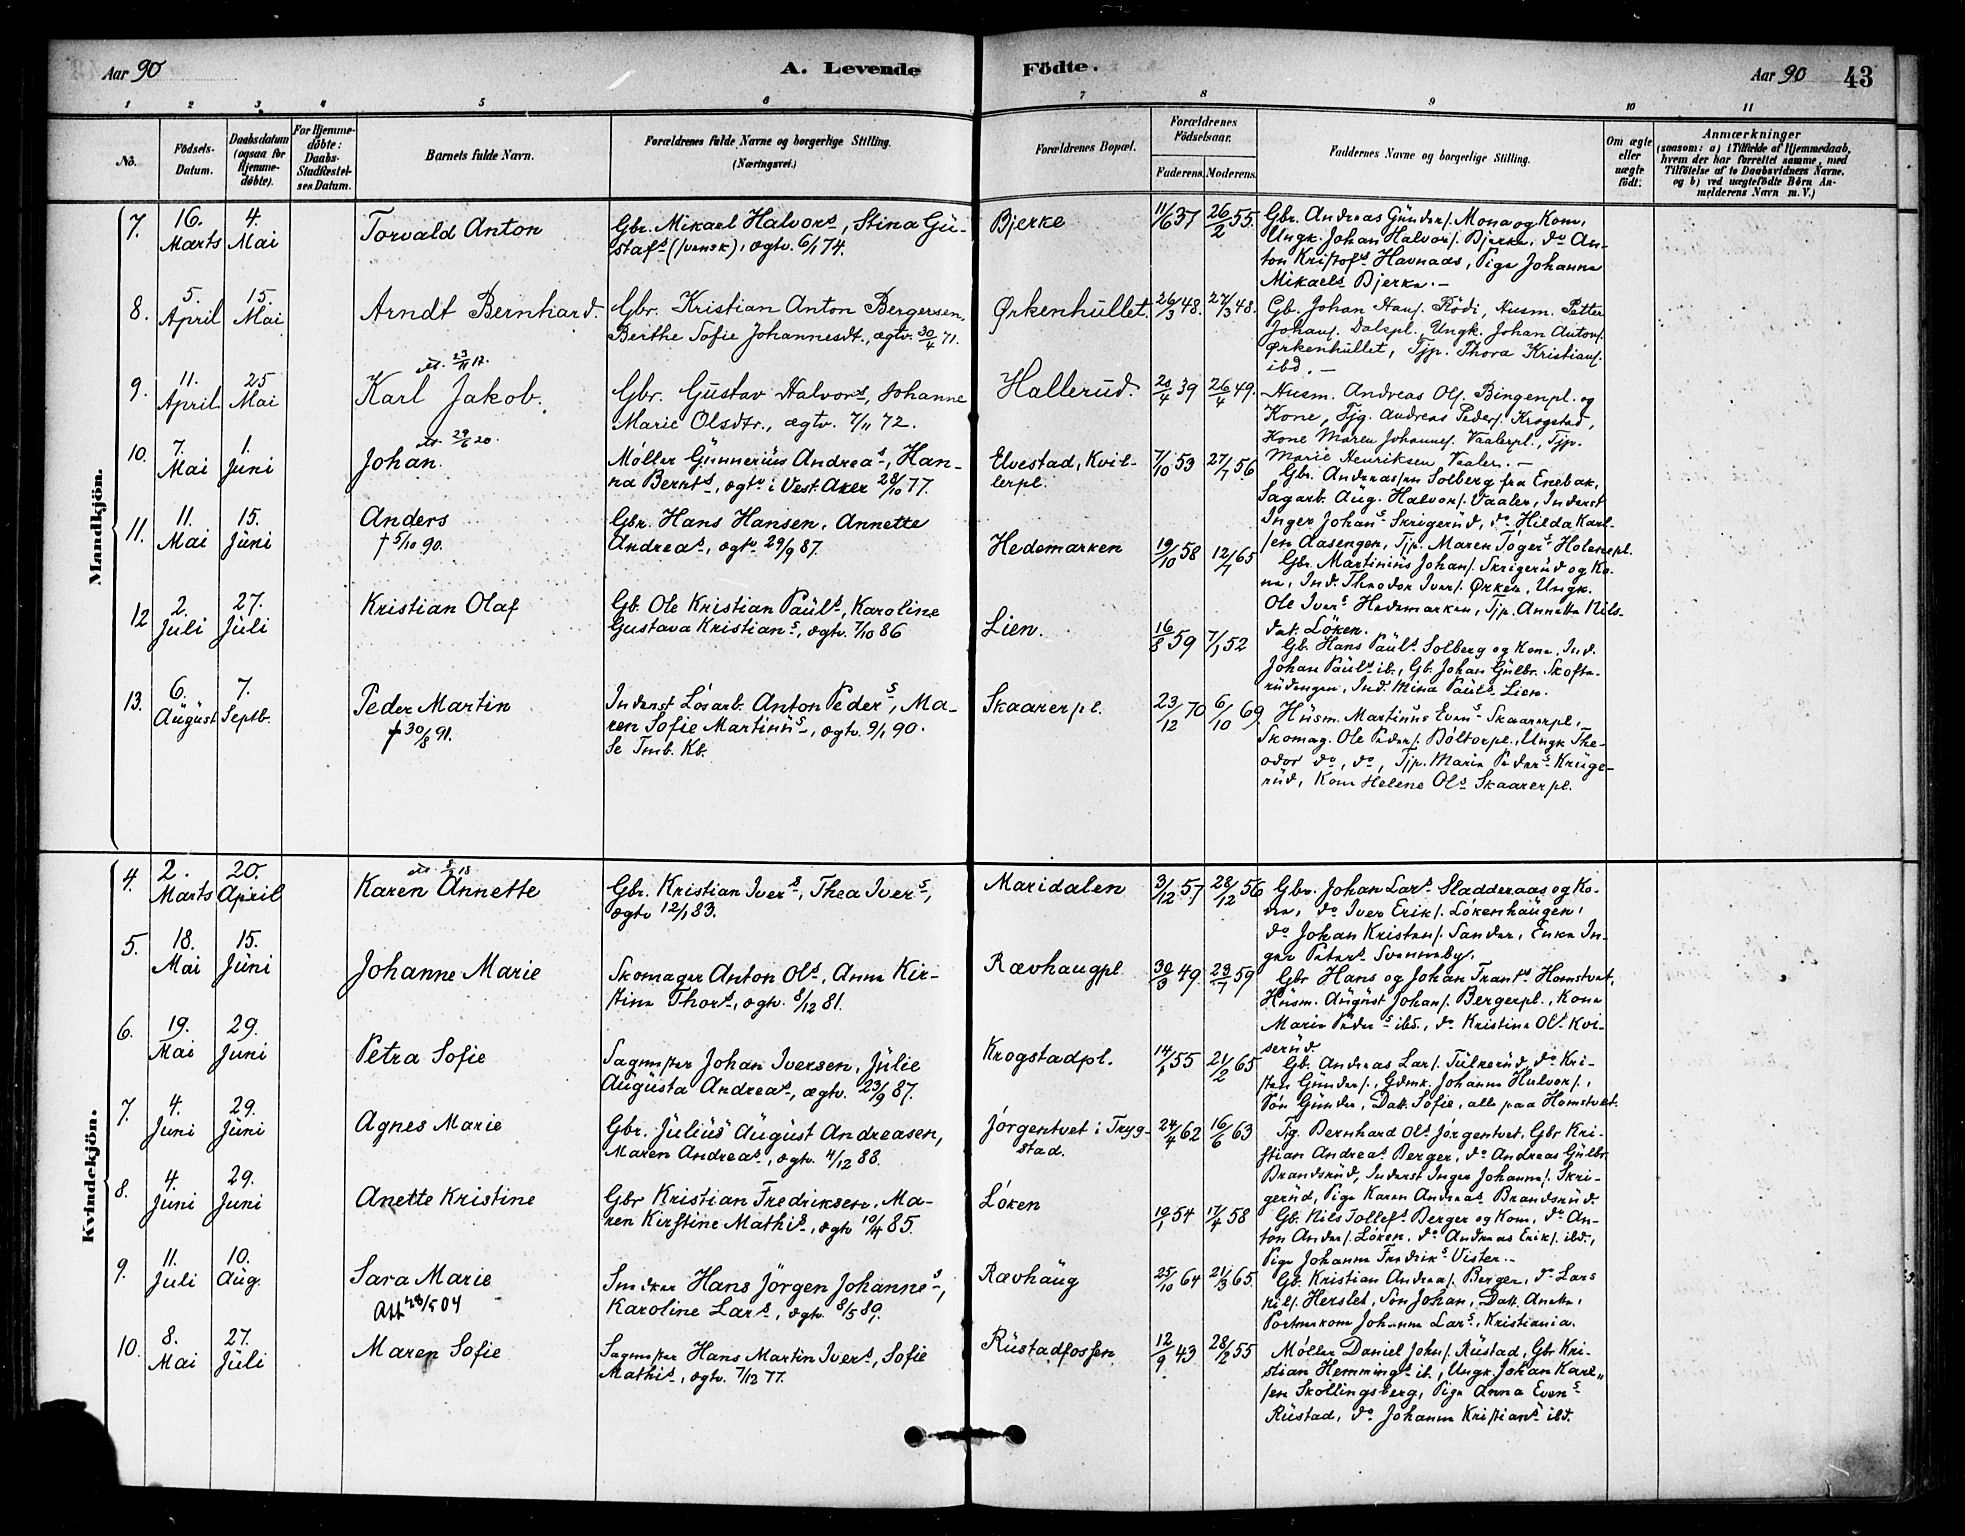 Aar 90
A. Levende
Födte.
Aar 90
43
1 2 3 4 5 6 7 8 9 10 11
No.
Födsels-
Datum.
Daabsdatum
(ogsaa for
Hjemme-
döbte).
For Hjemme-
döbte:
Daabs-
Stadfæstel-
ses Datum.
Barnets fulde Navn.
Forældrenes fulde Navne og borgerlige Stilling.
(Næringsvei.)
Forældrenes Bopæl.
Forældrenes
Födselsaar.
Faderens. Moderens.
Faddernes Navne og borgerlige Stilling.
Om ægte
eller
uægte
født.
Anmærkninger
(saasom: a) i Tilfælde af Hjemmedaab,
hvem der har forrettet samme, med
Tilföielse af to Daabsvidners Navne.
og b) ved uægtefödte Börn An-
melderens Navn m.V.)
Mandkjön.
7. 16. Marts 4. Mai Torvald Anton
Gbr. Mikael Halvors, Stina Gu-
stafs (svensk), ægtv. 6/1 74.
Bjerke 11/6 37 26/2 55.
Gbr. Andreas Gunders. Mona og Kone,
Ungk. Johan Halvors. Bjerke, do An-
ton Kristofs Havnaas, Pige Johanne
Mikaels Bjerke.–
8. 5. April 15. Mai Arndt Bernhard.
Gbr. Kristian Anton Bergersen,
Berthe Sofie Johannesdt., ægtv. 30/4 71.
Ørkenhullet 26/3 48. 27/3 48.
Gb. Johan Hans. Rödi, Husm. Petter
Johans. Dalepl., Ungk. Johan Antons.
Ørkenhullet, Tjp. Thora Kristians.
ibd.–
9. 11. April 25 Mai Karl Jakob.
Gbr. Gustav Halvors, Johanne
Marie Olsdtr., ægtv. 7/11 72.
Hallerud. 20/4 39 26/4 49.
Husm. Andreas Ols. Bingenpl. og
Kone, Tjg. Andreas Peders. Krogstad,
Kone Maren Johannes. Vaalerpl., Tjp.
Marie Henriksen Vaaler.–
10. 7. Mai 1. Juni Johan.
Møller Gunnerius Andreas, Han-
na Bernts, ægtv i Vest Aker 28/10 77.
Elvestad, Kvil-
lerpl. 7/10 53 27/7 56
Gbr. Andreassen Solberg fra Enebak,
Sagarb. Aug. Halvors. Vaaler, Inderst
Inger Johans Skrigerud, do Hilda Karl-
sen Aasengen, Tjp. Maren Tøgers Holenepl.
11. 11. Mai 15. Juni Anders
† 5/10 90.
Gbr. Hans Hansen, Annette
Andreas, ægtv 29/9 87.
Hedemarken 19/10 58 12/7 65
Gbr. Martinius Johans. Skrigerud og Ko-
ne, Ind. Theodor Ivers. Ørken, Ungk.
Ole Ivers Hedemarken, Tjp. Annette Nils-
dat. Löken.
12 2. Juli 27. Juli Kristian Olaf
Gb. Ole Kristian Pauls, Karoline
Gustava Kristians, ægtv. 7/10 86
Lien. 16/8 59 7/1 52
Gb. Hans Pauls Solberg og Kone, Ind.
Johan Pauls ib., Gb. Johan Gulbr. Skofte-
rudengen, Ind. Mina Pauls Lien.
13. 6. August 7. Septb. Peder Martin
† 30/8 91.
Inderst Lösarb. Anton Peders, Ma-
ren Sofie Martinus, ægtv. 9/1 90.
Se Tmb. Kb.
Skaarerpl. 23/12 70 6/10 69
Husm. Martinus Evens Skaarerpl,
Skomag. Ole Peders. Böltorpl., Ungk The-
odor do, do, Tjp. Marie Peders Kruge-
rud, Kone Helene Ols Skaarerpl.
Kvindekjön.
4. 2. Marts 20. April Karen Annette
Gbr. Kristian Ivers, Thea Ivers,
ægtv 12/1 83.
Maridalen 3/12 57 28/12 56
Gbr. Johan Lars Sladderaas og Ko-
ne, do Iver Eriks. Lökenhaugen,
do Johan Kristens. Sander, Enke In-
ger Peters Svenneby.
5. 18. Mai 15. Juni Johanne Marie
Skomager Anton Ols, Anne Kir-
stine Thors, ægtv. 8/12 81.
Rævhaugpl 30/3 49. 23/7 59
Gbr Hans og Johan Frants Homstvet,
Husm. August Johans. Bergerpl., Kone
Marie Peders ibd., do Kristine Ols Kvi-
serud.
6. 19. Mai 29. Juni Petra Sofie
Sagmester Johan Iversen, Julie
Augusta Andreas, ægtv. 23/9 87.
Krogstadpl. 14/1 55 21/2 65
Gb. Andreas Lars. Tukerud, do Kri-
sten Gunders., Gdmk. Johanne Halvors.,
Sön Gunder, Datt. Sofie, alle paa Homstvet.
7. 4. Juni 29. Juni Agnes Marie
Gbr. Julius August Andreasen,
Maren Andreas, ægtv. 4/12 88.
Jörgentvet i Tryg-
stad. 24/4 62 16/6 63
Tjg. Bernhard Ols Jörgentvet, Gbr Kri-
stian Andreas Berger, do Andreas Gulbr.
Brandsrud, Inderst Inger Johannes. Skri-
gerud, Pige Karen Andreas Brandsrud.
8. 4. Juni 29. Juni Anette Kristine
Gbr Kristian Fredriksen, Ma-
ren Kirstine Mathis, ægtv 10/4 85.
Löken 19/1 54 17/4 58
Gb. Nils Tollefs Berger og Kone, do An-
ton Anders. Löken, do Andreas Eriks. ibd.,
Pige Johanne Fredriks Vister.–
9. 11. Juli 10. Aug. Sara Marie
Att 28/5 04
Smedker Hans Jörgen Johannes,
Karoline Lars, ægtv. 8/5 89.
Rævhaug 25/10 64 21/3 65.
Gb. Kristian Andreas. Berger, do Lars
Nils. Herslet, Sön Johan, Datt. Anette,
Johanne Lars, Kristiania.
10. 8. Mai 27. Juli Maren Sofie
Sagmester Hans Martin Ivers, Sofie
Mathis, ægtv. 7/12 77.
Rustadfossen 12/9 43 28/2 55
Møller Daniel Johs. Rustad, Gbr Kri-
stian Hemmings ib., Ungk. Johan Karl-
sen Skollingsberg, Pige Anna Evens
Rustad, do Johanne Kristians ibd.